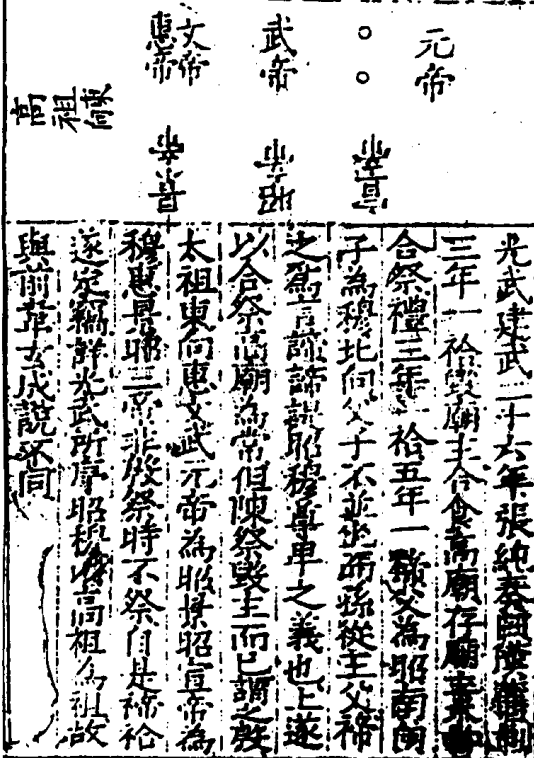 元帝
武帝
文帝
惠帝
高祖東向
光武建武二十六年張純奏
三年一祫毀廟主合食高廟存廟主
合祭禮三年一祫五年一禘父為昭南向
子為穆北向父子不並坐而孫從王父禘
之為言諦諦諟昭穆尊卑之義也上遂
以合祭高廟為常但陳祭毀主而已謂之殷
太祖東向惠文武元帝為昭景昭宣帝為
穆惠景昭三帝非殷祭時不祭自是禘祫
遂定 光武所序昭穆 高祖為祖故
與前韋玄成說不同